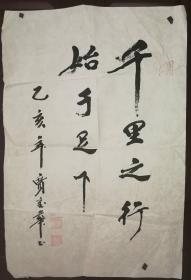 千里之行
始于足下
乙亥年 賈